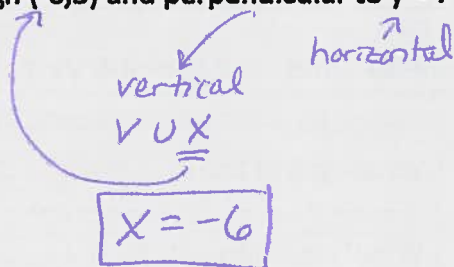 and perpendicular to y
horizontal
vertical
V U X
X = -6